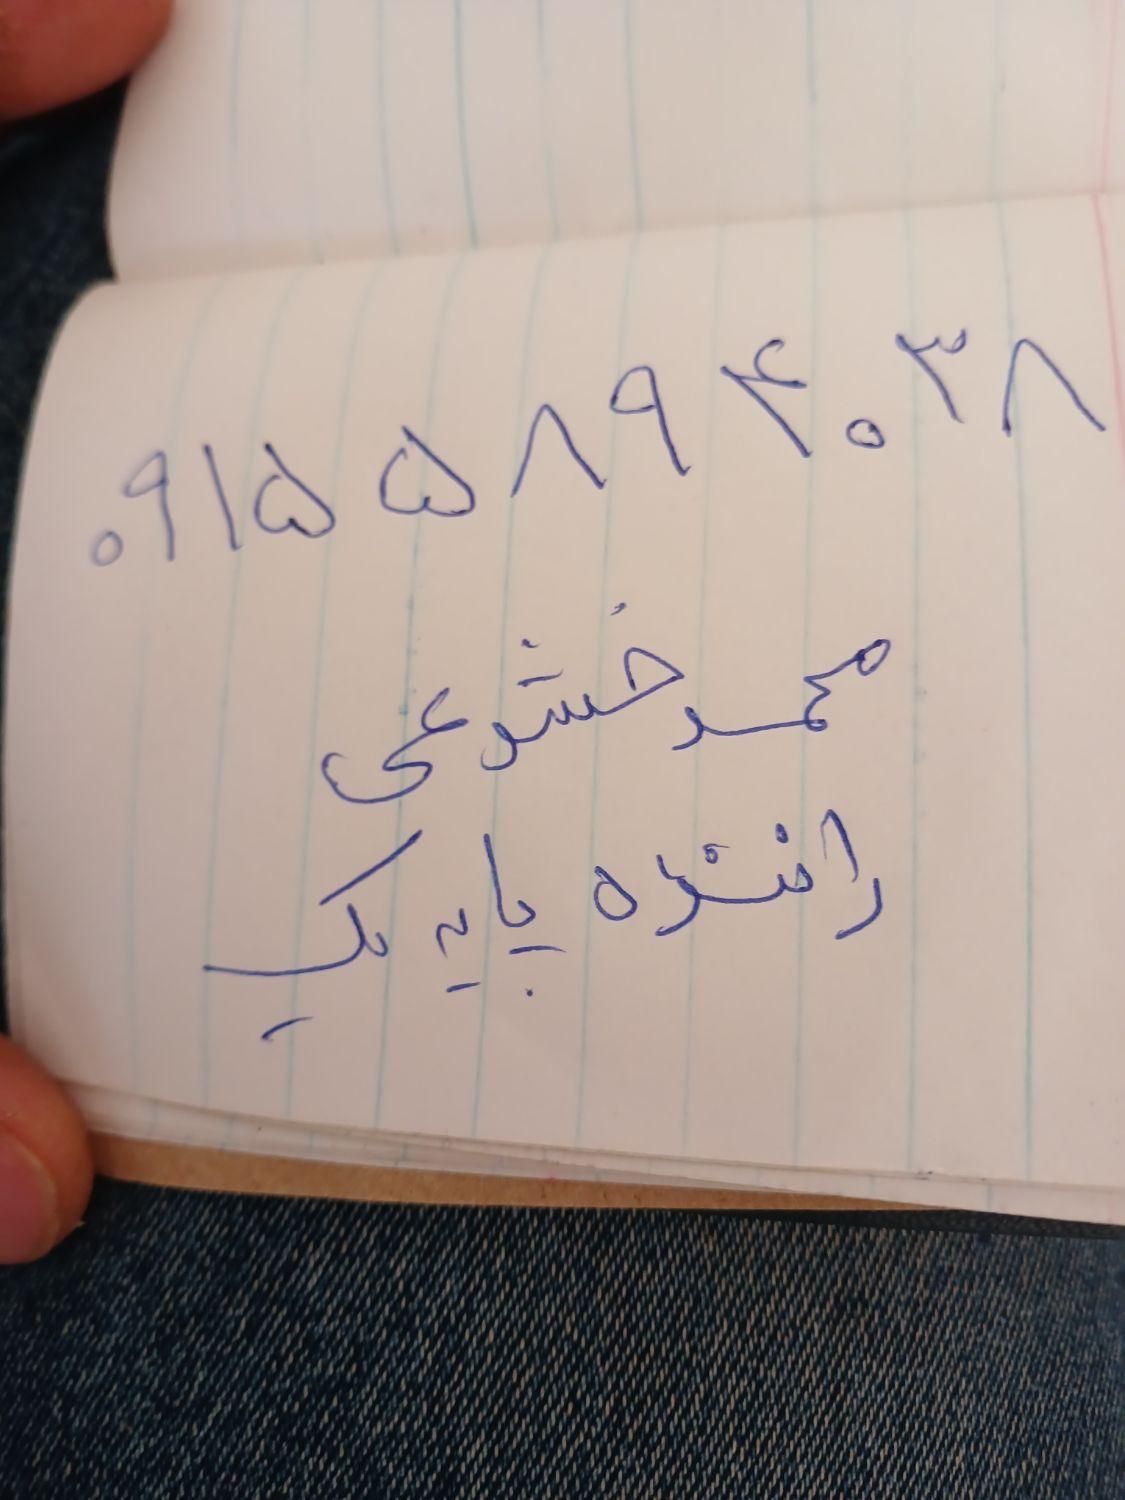 ۰۹۱۵ ۵۸۹ ۴۰۳۸
محمد خشوعی
راننده پایه یک